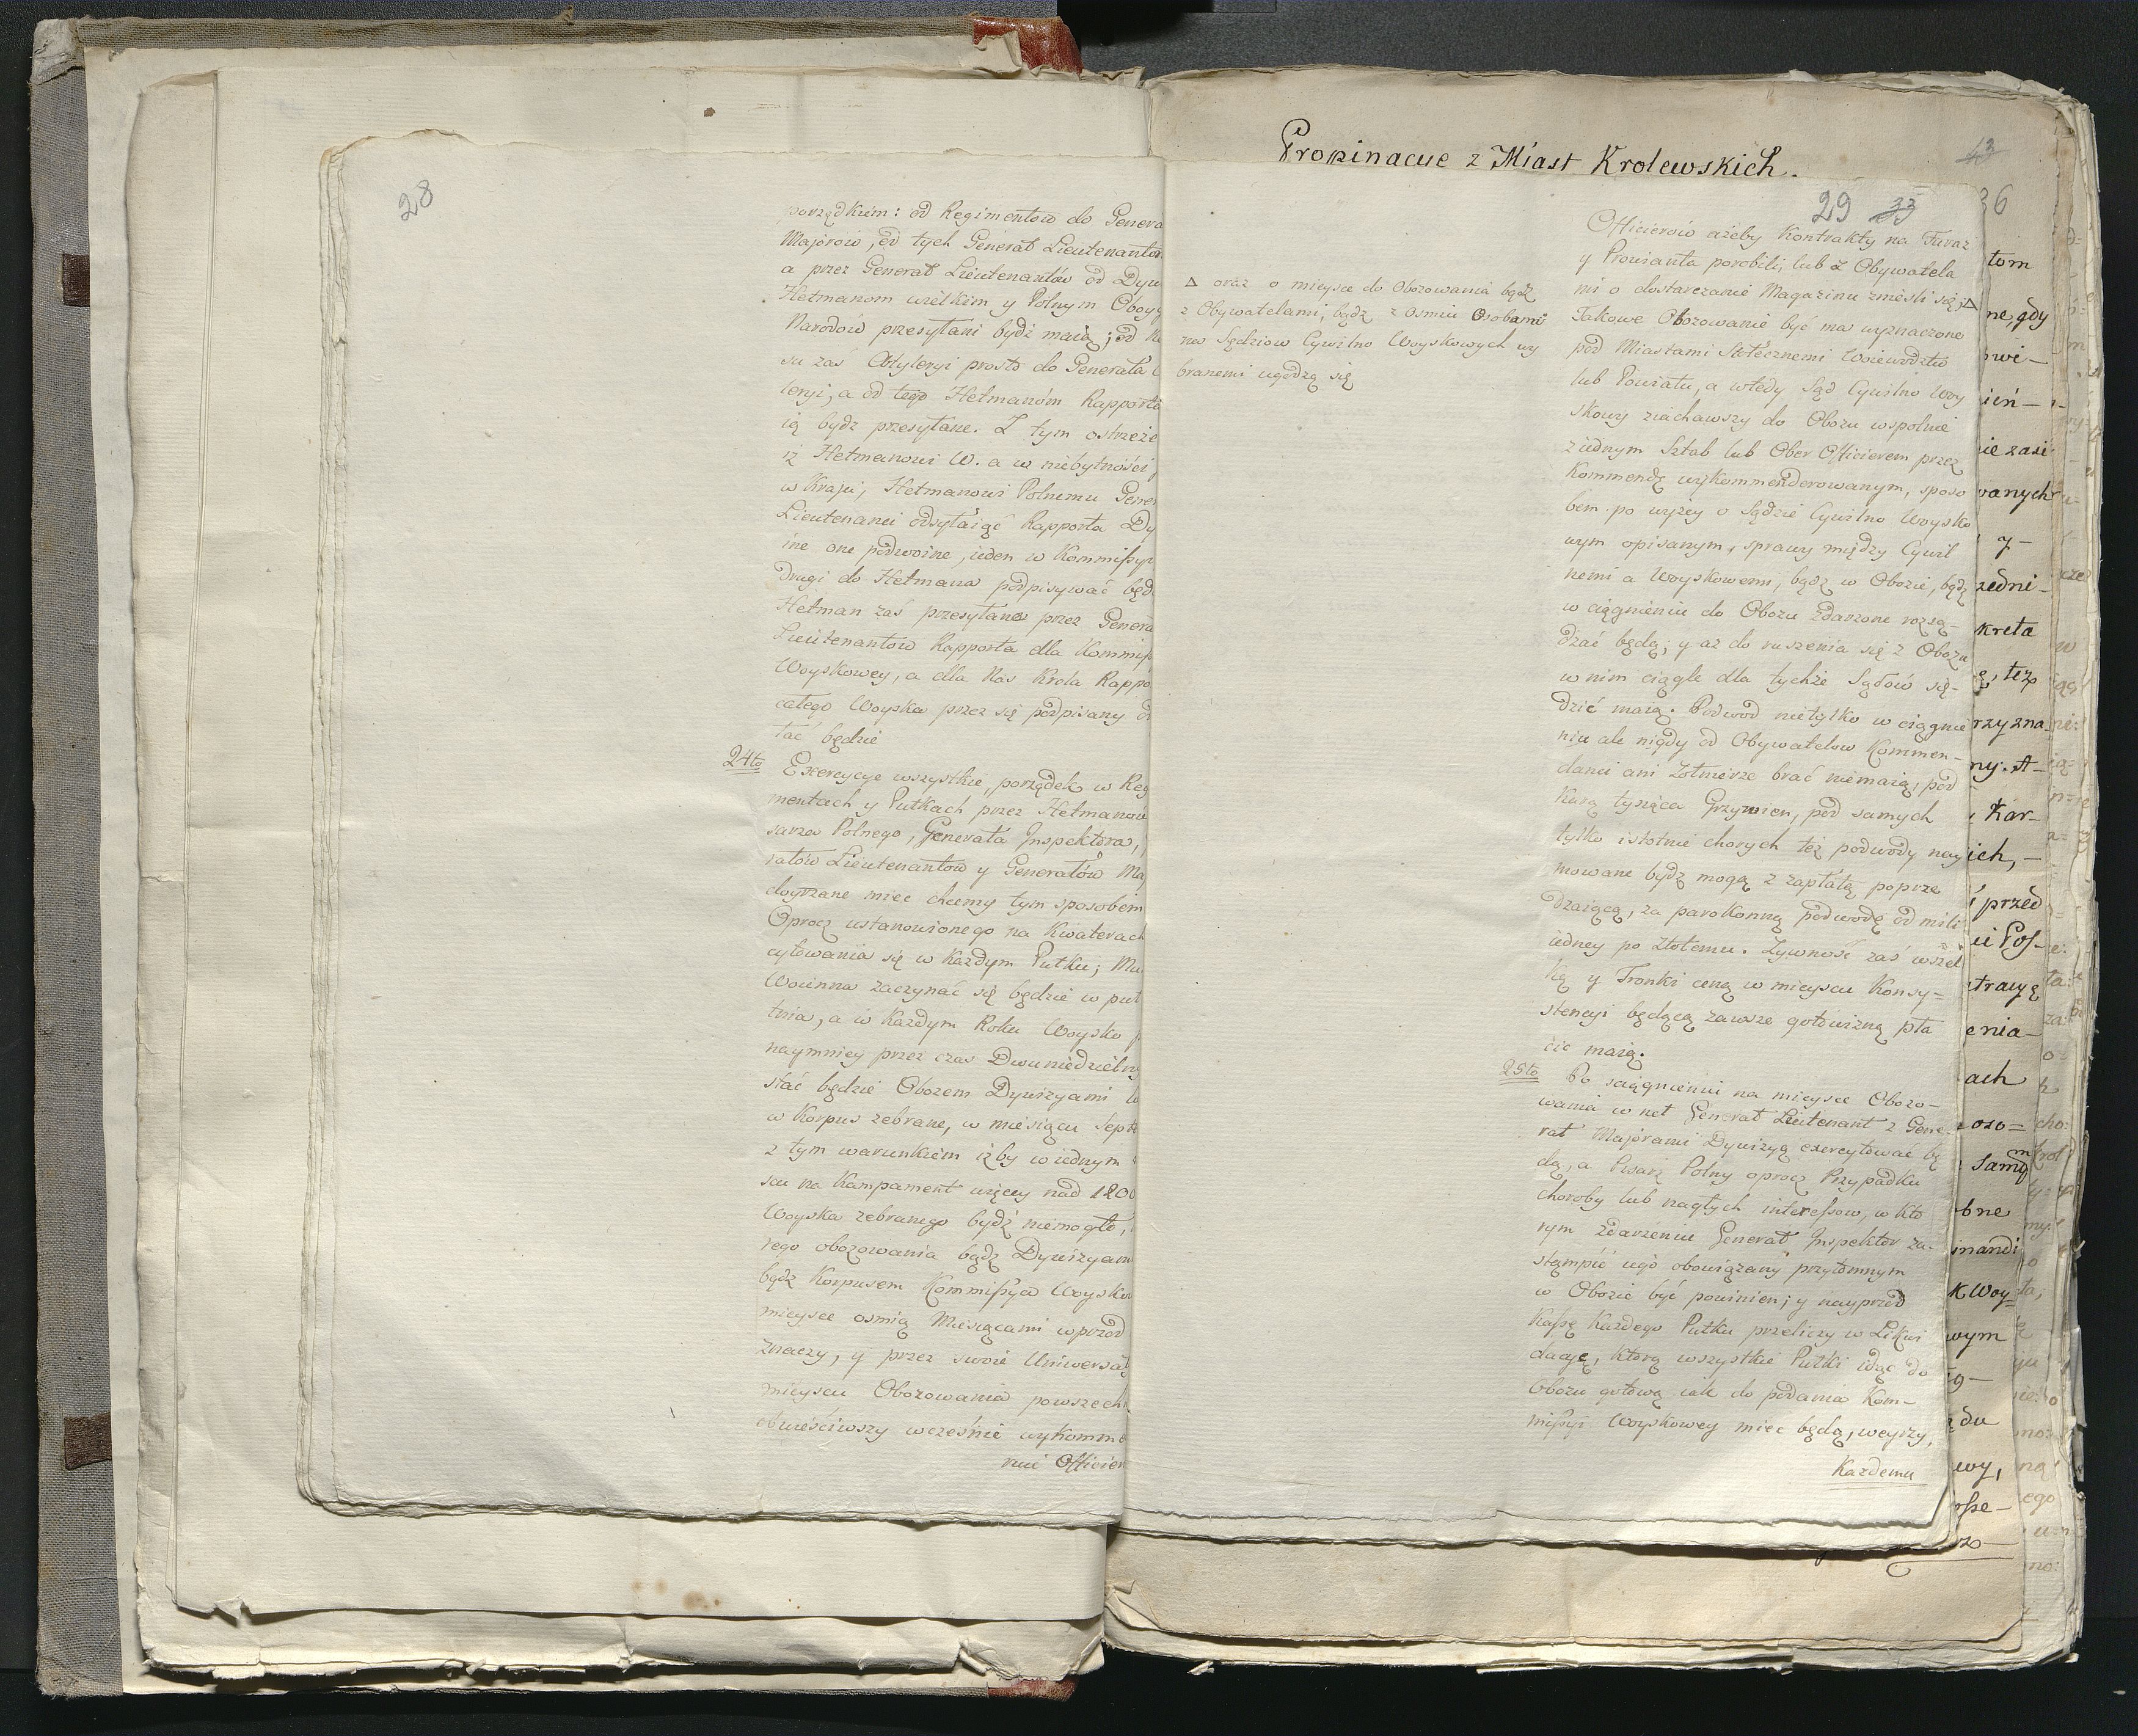 28
porządkiem: od Regimentow do Genera
Majorow, od tych Generał Lieutenantow
a przez Generał Lieutenantów od Dyw
Hetmanom wielkim y Polnym Oboyg
Narodów przesyłani bydź maią; od K
su zaś Artyleryi prosto do Generała
leryi, a od tego Hetmanóm Rapporta
ią bydz przesyłane. Z tym ostrzeże
iż Hetmanowi W. a w niebytności
w Kraju, Hetmanowi Polnemu Gener
Lieutenanci odsyłaiąc Rapporta Dy
ine one podwoine, ieden w Kommissyi
drugi do Hetmana podpisywać będ
Hetman zaś przesyłane przez Genera
Lieutenantow Rapporta dla Kommiss
Woyskowey, a dla Nas Krola Rappo
całego Woyska przez się podpisany od
łać będzie
24to Exercycye wszystkie, porządek w Reg
mentach y Pułkach przez Hetmanow
sarza Polnego, Generała Inspektora,
rałów Lieutenantow y Generałów Ma
doyrzane miec chcemy tym sposobem
Oprocz ustanowionego na Kwaterach
cytowania się w Każdym Pułku; Mu
Woienna zaczynać się będzie w puł
tnia, a w Każdym Roku Woysko p
naymniey przez czas Dwuniedzielny
stać będzie Obozem Dywizyami
w Korpus zebrane, w miesiącu Septe
z tym warunkiem iżby w iednym
scu na Kampament więcey nad 1200
Woyska zebranego bydź niemogło,
rego obozowania bądz Dywizyam
bądz Korpusem Kommissya Woysko
mieysce osmią Miesiącami wprzod
znaczy, y przez swoie Uniwersał
mieyscu Obozowania powszech
obwieściwszy wcześnie wykomme
rui Officier
Propinacye z Miast Krolewskich.
43
29 33
36
∆ oraz o mieysce do Obozowania bądz
z Obywatelami, bądz z osmiu Osobami
na Sędziow Cywilno Woyskowych wy
branemi ugodzą się
Officierów ażeby Kontrakty na Furaż
y Prowianta porobili, lub z Obywatela
mi o dostarczanie Magazinu znieśli się; ∆
Takowe Obozowanie być ma wyznaczone
pod Miastami Stołecznemi Woiewodztw
lub Powiatu, a wtedy Sąd Cywilno Woy
skowy ziachawszy do Obozu wspolnie
z iednym Sztab lub Ober Officierem przez
Kommendę wykommenderowanym, sposo
bem po wyzey o Sądzie Cywilno Woysko
wym opisanym, sprawy między Cywil
nemi a Woyskowemi, bądz w Obozie, bądz
w ciągnieniu do Obozu zdarzone rozsą-
dzać będą; y aż do ruszenia się z Obozu
w nim ciągle dla tychże Sądow się-
dzić maią. Podwod nietylko w ciągnie
niu ale nigdy od Obywatelow Kommen-
danci ani Żołnierze brać niemaią, pod
Karą tysiąca Grzywien, pod samych
tylko istotnie chorych też podwody nay
mowane bydz mogą z zapłatą poprze
dzaiącą, za parokonną podwodę od mili
iedney po złotemu. Zywność zaś wszel
ką y Tronki ceną w mieyscu Konsy=
stencyi będącą zawsze gotowizną pła
cic maią.
25to Po sciągnieniu na mieysce Obozo-
wania w net Generał Lieutenant z Gene-
rał Majorami Dywizyą exercytować bę
dą, a Pisarz Polny oprocz Przypadku
choroby lub nagłych interessow, w Kto
rym zdarzeniu Generał Inspektor za-
stąmpić iego obowiązany przytomnym
w Obozie być powinien; y nayprzod
Kassę Każdego Pułku przeliczy w Likwi
dacyę, Ktorą wszystkie Pułki idąc do
Obozu gotową iak do podania Kom-
missyi Woyskowey miec będą, weyrzy,
Każdemu
tom
ne, gdy
wi-
ień-
ie zasi
wanych
y-
zedni-
kreta
ę, też
rzyzna
ny. A-
Kar-
ich,-
przed
ei Pos-
tracyę
enia-
ach
oso=
samy
bne
inandi
K Woy-
wym
du
wy,